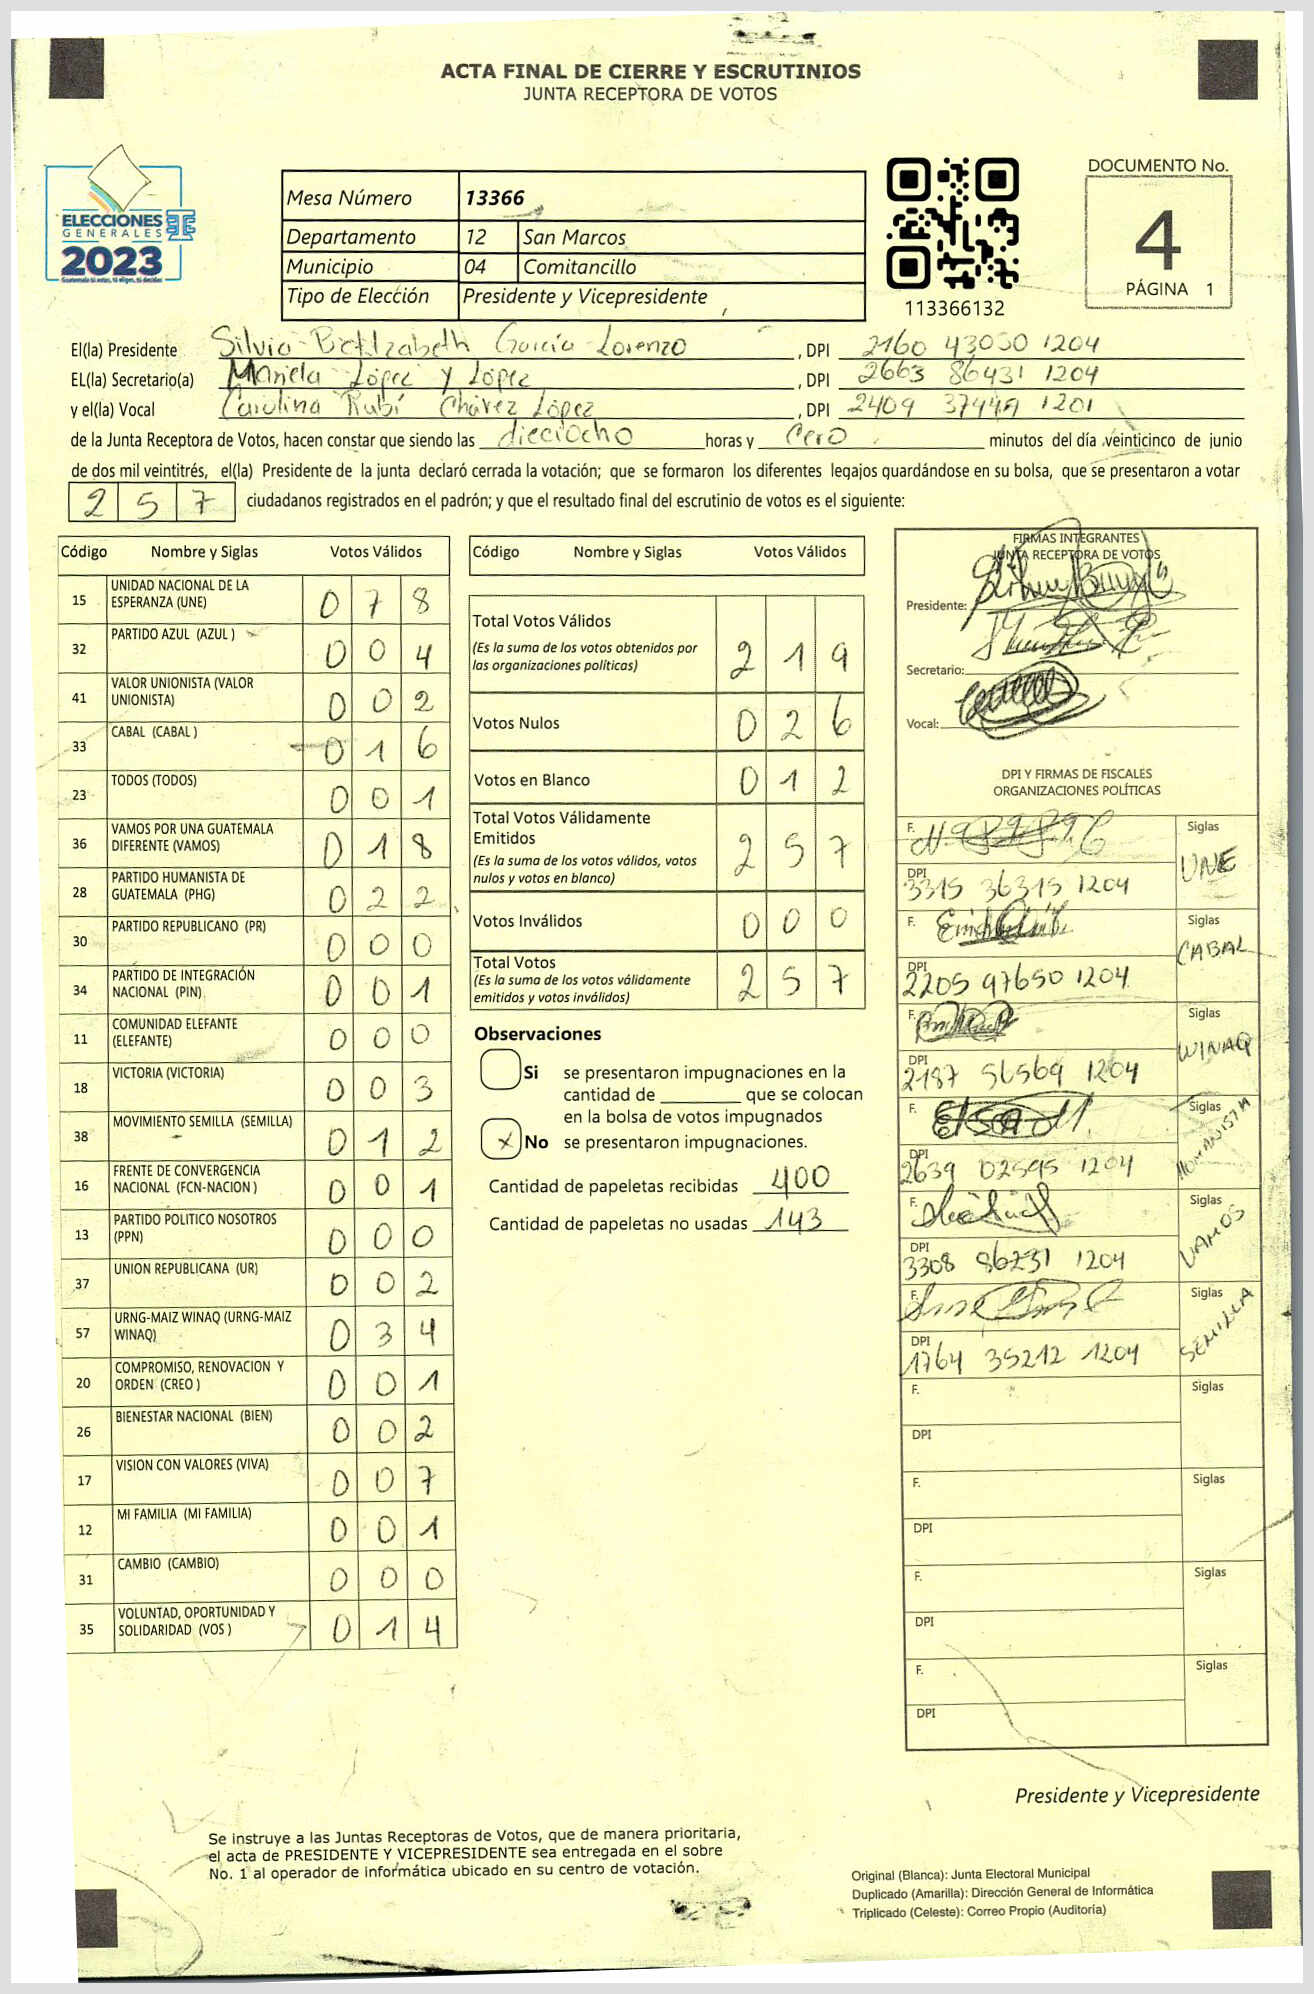 ACTA FINAL DE CIERRE Y ESCRUTINIOS
JUNTA RECEPTORA DE VOTOS
ELECCIONES
GENERALES
2023
Guatemala tú votas, tú eliges, tú decides
Mesa Número 13366
Departamento 12 San Marcos
Municipio 04 Comitancillo
Tipo de Elección Presidente y Vicepresidente
113366132
DOCUMENTO No.
4
PÁGINA 1
El(la) Presidente Silvia García Lorenzo, DPI 2160 43050 1204
EL(la) Secretario(a) Mariela López y López, DPI 2663 86431 1204
y el(la) Vocal Carolina Rubí Chávez López, DPI 2409 1201
de la Junta Receptora de Votos, hacen constar que siendo las dieciocho horas y cero minutos del día veinticinco de junio
de dos mil veintitrés, el(la) Presidente de la junta declaró cerrada la votación; que se formaron los diferentes legajos guardándose en su bolsa, que se presentaron a votar
257 ciudadanos registrados en el padrón; y que el resultado final del escrutinio de votos es el siguiente:
Código Nombre y Siglas Votos Válidos
15 UNIDAD NACIONAL DE LA ESPERANZA (UNE) 078
32 PARTIDO AZUL (AZUL ) 004
41 VALOR UNIONISTA (VALOR UNIONISTA) 002
33 CABAL (CABAL ) 016
23 TODOS (TODOS) 001
36 VAMOS POR UNA GUATEMALA DIFERENTE (VAMOS) 018
28 PARTIDO HUMANISTA DE GUATEMALA (PHG) 022
30 PARTIDO REPUBLICANO (PR) 000
34 PARTIDO DE INTEGRACIÓN NACIONAL (PIN) 001
11 COMUNIDAD ELEFANTE (ELEFANTE) 000
18 VICTORIA (VICTORIA) 003
38 MOVIMIENTO SEMILLA (SEMILLA) 012
16 FRENTE DE CONVERGENCIA NACIONAL (FCN-NACION ) 001
13 PARTIDO POLITICO NOSOTROS (PPN) 000
37 UNION REPUBLICANA (UR) 002
57 URNG-MAIZ WINAQ (URNG-MAIZ WINAQ) 034
20 COMPROMISO, RENOVACION Y ORDEN (CREO ) 001
26 BIENESTAR NACIONAL (BIEN) 002
17 VISION CON VALORES (VIVA) 007
12 MI FAMILIA (MI FAMILIA) 001
31 CAMBIO (CAMBIO) 000
35 VOLUNTAD, OPORTUNIDAD Y SOLIDARIDAD (VOS ) 014
Código Nombre y Siglas Votos Válidos
Total Votos Válidos 219
(Es la suma de los votos obtenidos por
las organizaciones políticas)
Votos Nulos 026
Votos en Blanco 012
Total Votos Válidamente
Emitidos 257
(Es la suma de los votos válidos, votos
nulos y votos en blanco)
Votos Inválidos 000
Total Votos 257
(Es la suma de los votos válidamente
emitidos y votos inválidos)
Observaciones
Si se presentaron impugnaciones en la
cantidad de ________ que se colocan
en la bolsa de votos impugnados
X No se presentaron impugnaciones.
Cantidad de papeletas recibidas 400
Cantidad de papeletas no usadas 143
FIRMAS INTEGRANTES
JUNTA RECEPTORA DE VOTOS
Presidente:
Secretario:
Vocal:
DPI Y FIRMAS DE FISCALES
ORGANIZACIONES POLÍTICAS
F. Siglas UNE
DPI 3315 36315 1204
F. Siglas CABAL
DPI 2205 97650 1204
F. Siglas WINAQ
DPI 2187 56569 1204
F. Siglas HUMANISTA
DPI 2639 02595 1204
F. Siglas VAMOS
DPI 3308 86231 1204
F. Siglas SEMILLA
DPI 1764 35212 1204
F. Siglas
DPI
F. Siglas
DPI
F. Siglas
DPI
F. Siglas
DPI
Presidente y Vicepresidente
Se instruye a las Juntas Receptoras de Votos, que de manera prioritaria,
el acta de PRESIDENTE Y VICEPRESIDENTE sea entregada en el sobre
No. 1 al operador de informática ubicado en su centro de votación.
Original (Blanca): Junta Electoral Municipal
Duplicado (Amarilla): Dirección General de Informática
Triplicado (Celeste): Correo Propio (Auditoría)